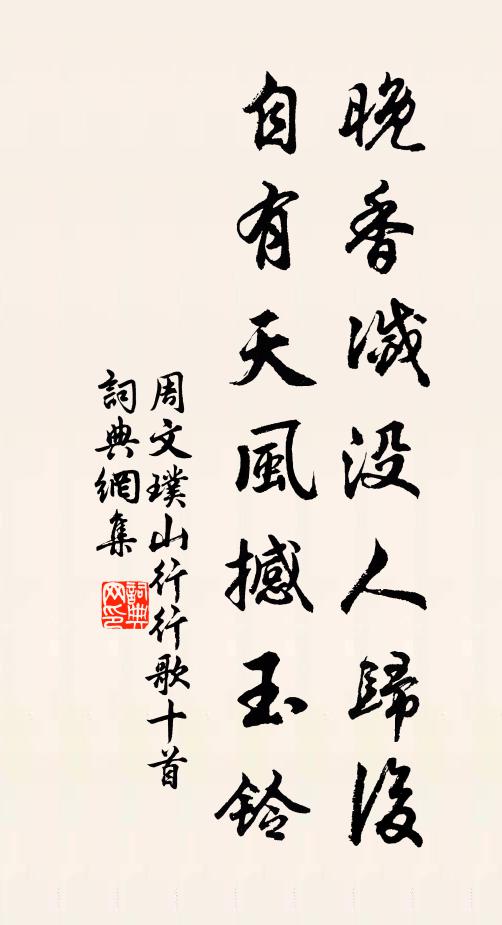 晚香滅没人歸後
自有天風撼玉鈴
周文璞山行行歌十首
詞典網集
詞典网印